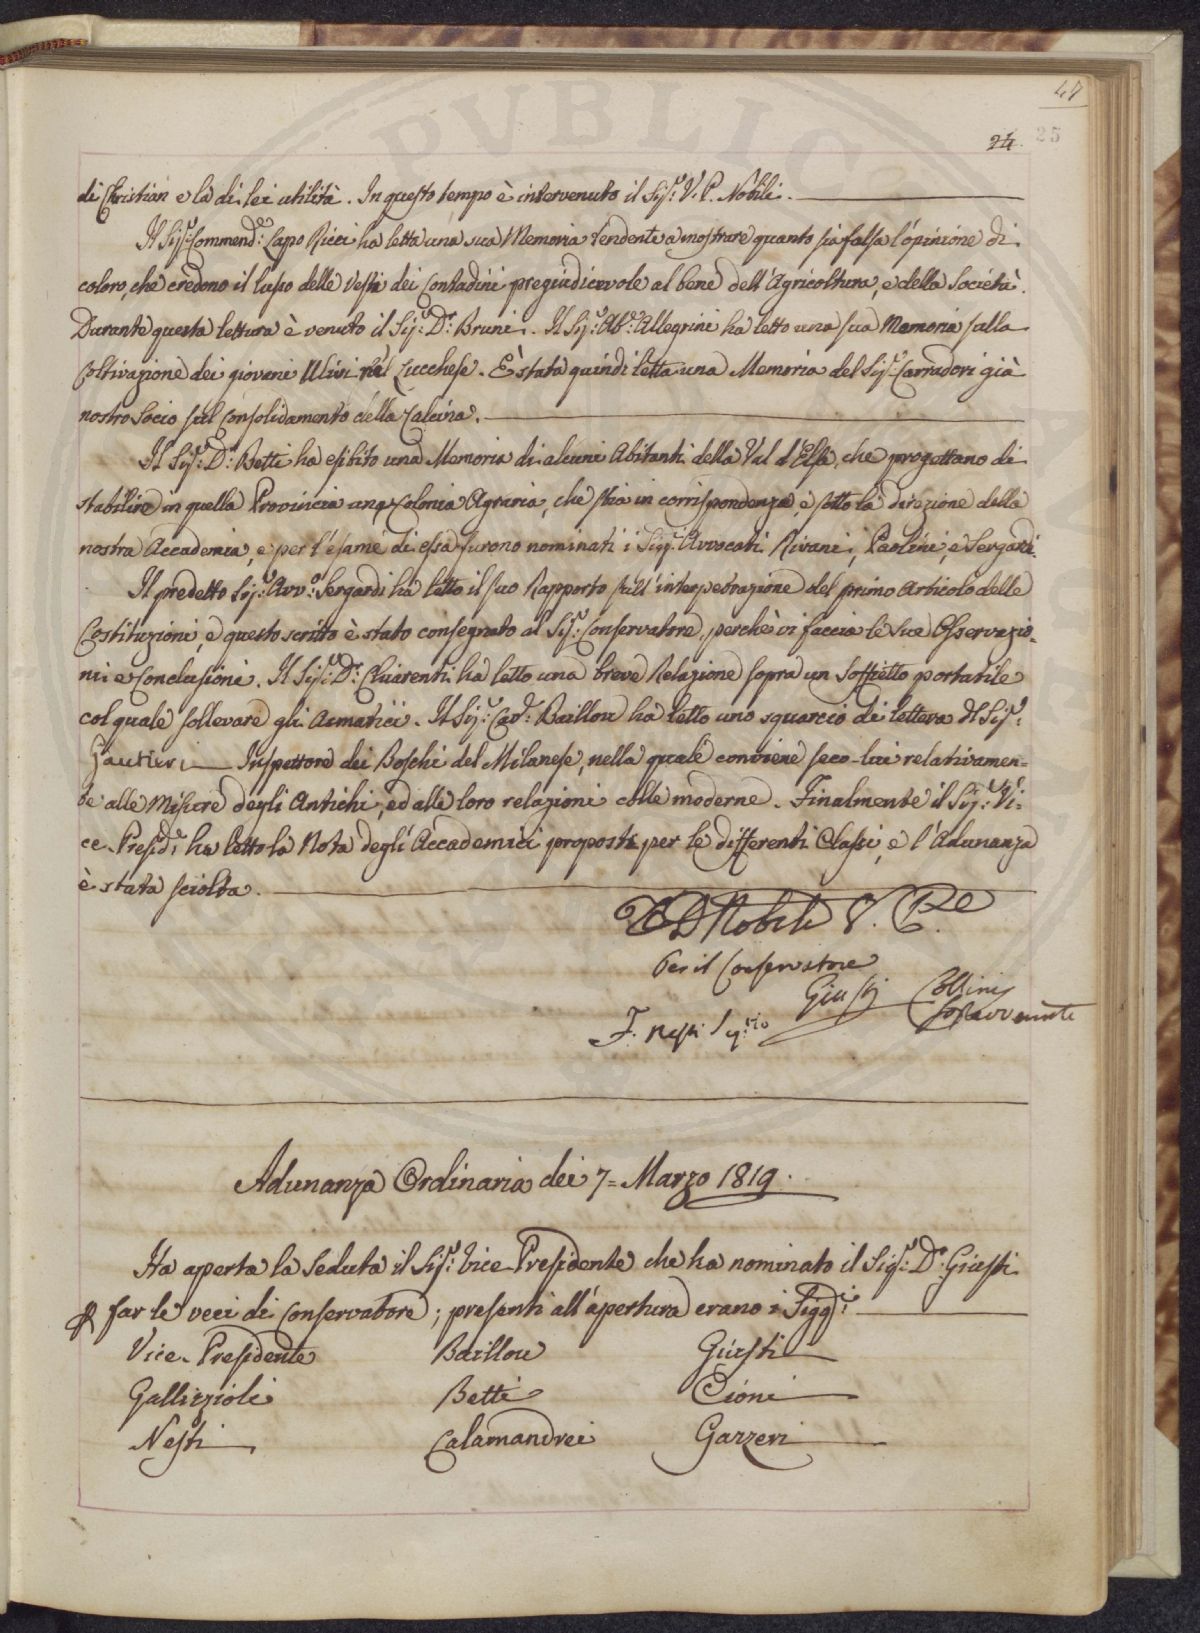 47
24. 25
di Christian e la di lei utilità. In questo tempo è intervenuto il Sig.r V. P. Nobili.
Il Sig.r Commend.e Lapo Ricci ha letta una sua Memoria tendente a mostrare quanto sia falsa l'opinione di
coloro, che credono il lusso delle vesti dei Contadini pregiudicevole al bene dell'Agricoltura, e della Società.
Durante questa lettura è venuto il Sig.r D.r Bruni. Il Sig.r Ab.e Allegrini ha letto una sua Memoria sulla
Coltivazione dei giovani Ulivi nel Lucchese. È stata quindi letta una Memoria del Sig.r Carradori già
nostro Socio sul Consolidamento della Calcina.
Il Sig.r D.r Betti ha esibito una Memoria di alcuni Abitanti della Val d'Elsa, che progettano di
stabilire in quella Provincia una Colonia Agraria, che stia in corrispondenza, e sotto la direzione della
nostra Accademia, e per l'esame di essa furono nominati i Sigg.ri Avvocati Rivani, Paolini, e Sergardi.
Il predetto Sig.r Avv.o Sergardi ha letto il suo Rapporto sull'interpetrazione del primo Articolo delle
Costituzioni, e questo scritto è stato consegnato al Sig.r Conservatore, perchè vi faccia le sue Osservazio-
ni e Conclusioni. Il Sig.r D.r Chiarenti ha letto una breve Relazione sopra un Soffietto portatile
col quale sollevare gli Asmatici. Il Sig.r Cav.e Baillou ha letto uno squarcio di lettera del Sig.r
Gautieri Inspettore dei Boschi del Milanese, nella quale conviene seco lui relativamen-
te alle Misure degli Antichi, ed alle loro relazioni colle moderne. Finalmente il Sig.r Vi-
ce-Presid.e ha letto la Nota degli Accademici proposti per le differenti Classi, e l'Adunanza
è stata sciolta.
Nobili V. P.e
Per il Conservatore
Giusti
F. Nesti Seg.rio
Adunanza Ordinaria dei 7= Marzo 1819.
Ha aperta la Seduta il Sig.r Vice-Presidente che ha nominato il Sig.r D.r Giusti
p far le veci di Conservatore; presenti all'apertura erano i Sigg.ri
Vice-Presidente Baillou Giusti
Gallizioli Betti Cioni
Nesti Calamandrei Gazzeri